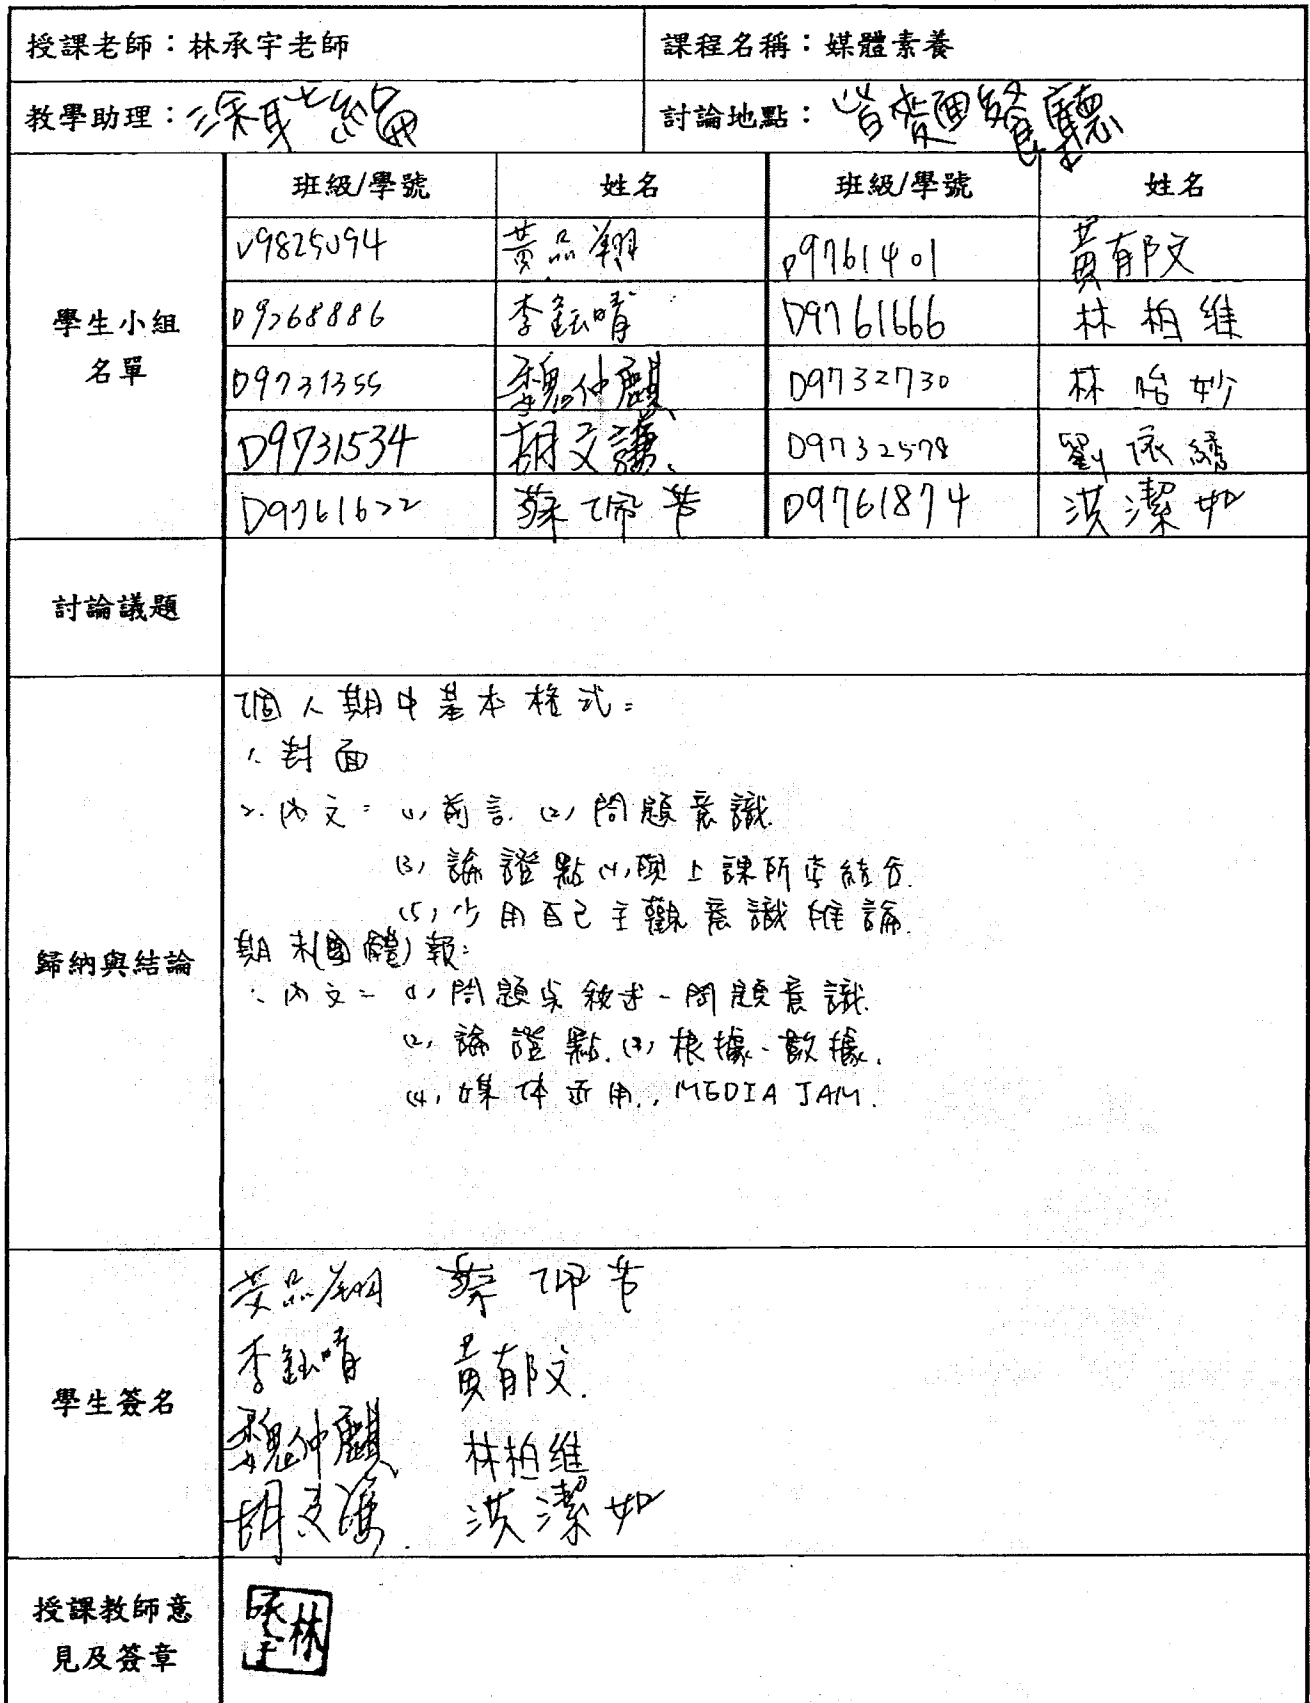 授課老師：林承宇老師 課程名稱：媒體素養
教學助理： 討論地點：肯麥西餐廳
學生小組名單 班級/學號 姓名 班級/學號 姓名
V9825094 黃品翔 D9761401 黃郁文
D9268886 李鈺晴 D9761666 林柏維
D9731355 魏仲麒 D9732730 林怡妙
D9731534 胡文謙 D9732578 劉依綉
D9761622 蔡佩芳 D9761874 洪潔如
討論議題
歸納與結論
個人期中基本格式：
1. 封面
2. 內文：(1) 前言 (2) 問題意識
(3) 論證點 (4) 與上課所學結合.
(5) 少用自己主觀意識推論.
期末(團體)報：
1. 內文：(1) 問題與敘述-問題意識
(2) 論證點 (3) 根據、數據.
(4) 媒体近用, MEDIA JAM.
學生簽名
黃品翔 蔡佩芳
李鈺晴 黃郁文.
魏仲麒 林柏維
胡文謙. 洪潔如
授課教師意見及簽章
林承宇